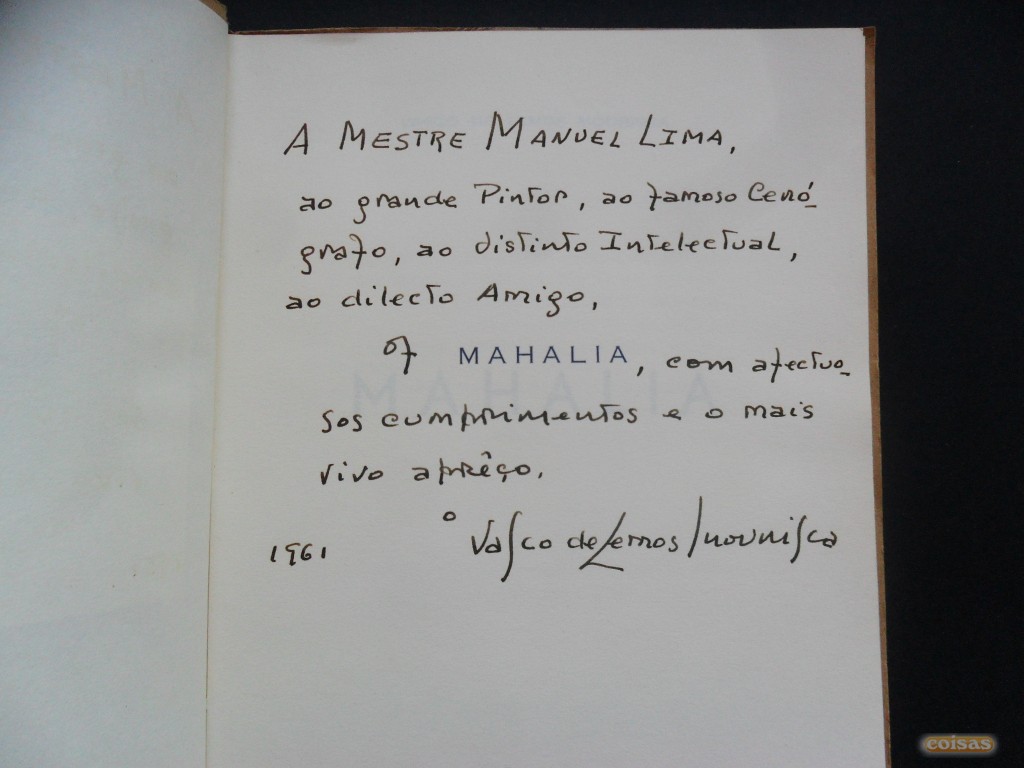 A MESTRE MANUEL LIMA,
ao grande Pintor, ao famoso Cenó-
grafo, ao distinto Intelectual,
ao dilecto Amigo,
of MAHALIA, com afectuo-
sos cumprimentos e o mais
vivo aprêço.
o Vasco de Lemos
1961
coisas